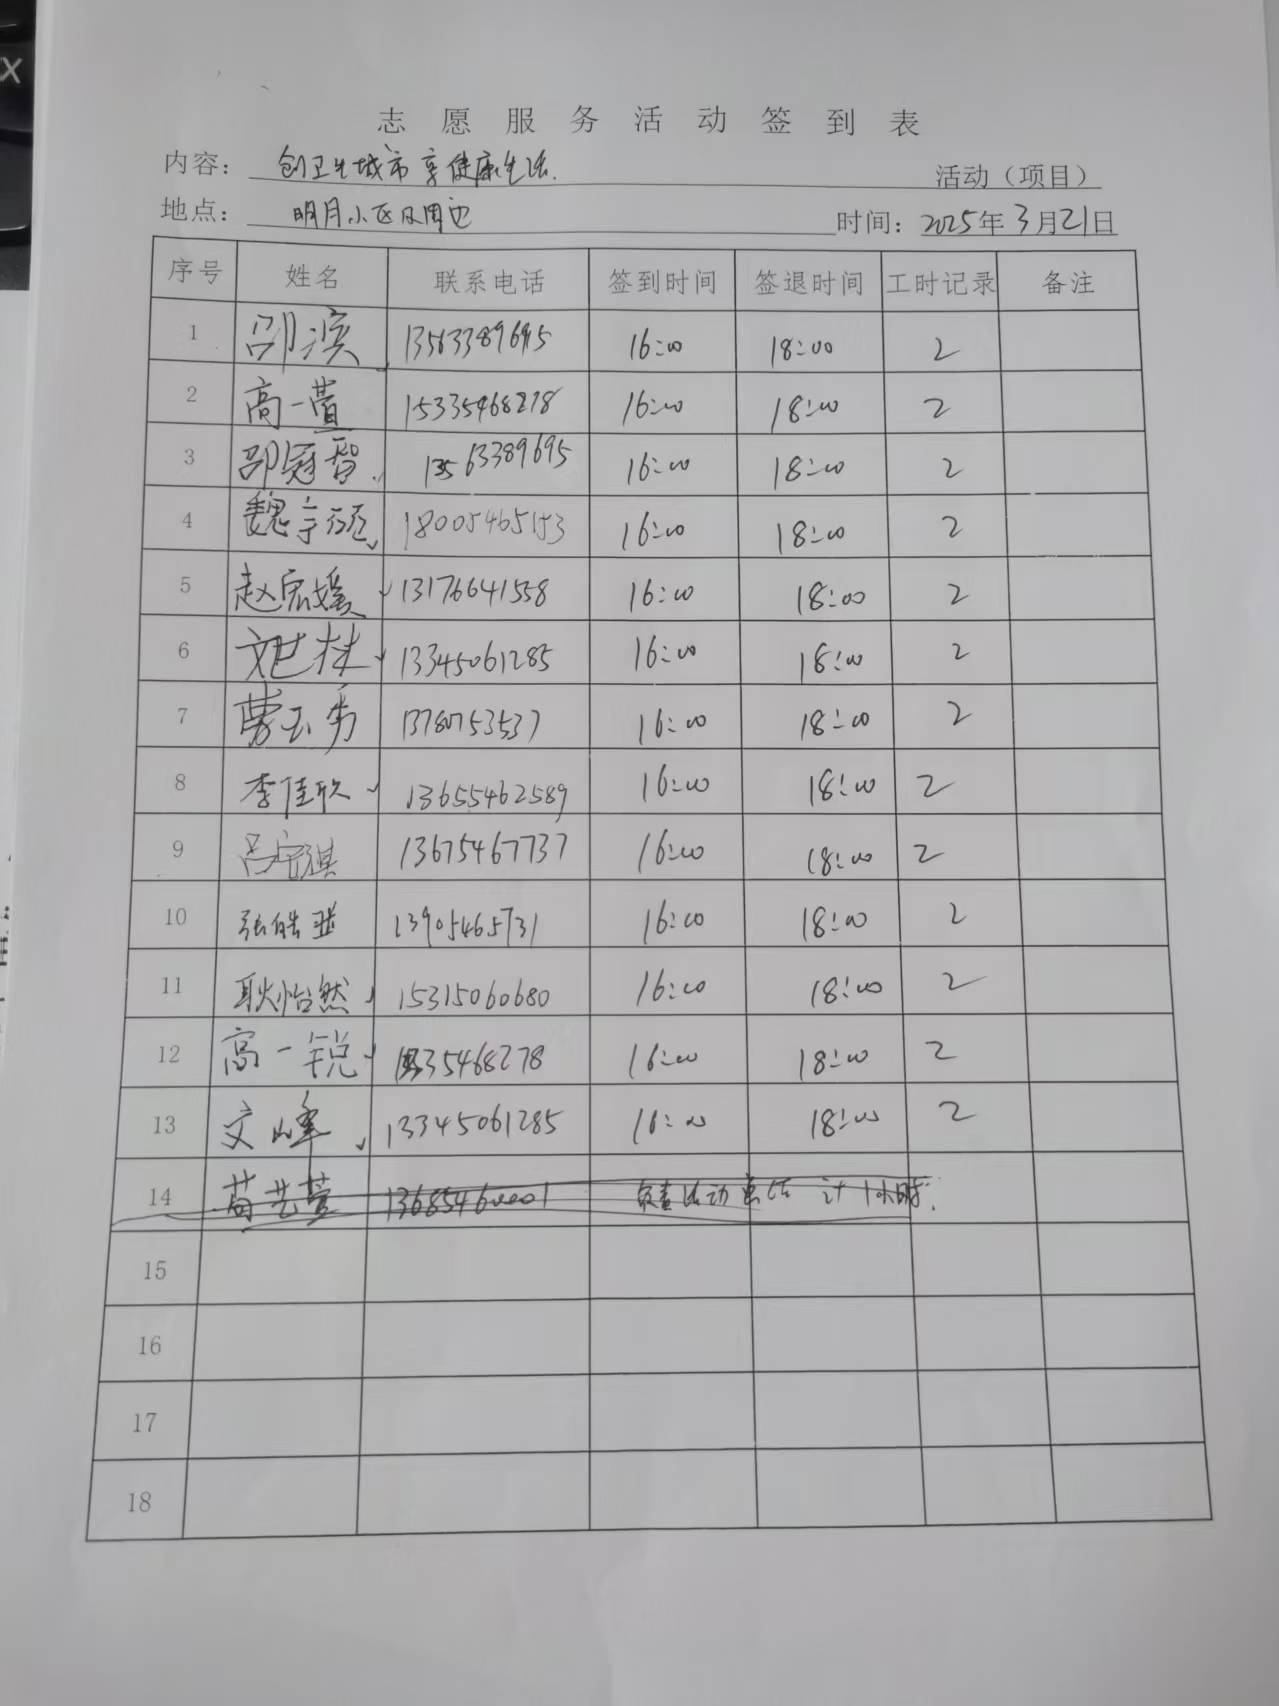 志愿服务活动签到表
内容：创卫生城市 享健康生活. 活动（项目）
地点：明月小区及周边 时间：2025年3月21日
序号 姓名 联系电话 签到时间 签退时间 工时记录 备注
1 邵滨 13563389695 16:00 18:00 2
2 高一萱 15335468278 16:00 18:00 2
3 邵冠智 13563389695 16:00 18:00 2
4 魏宇硕 18005465153 16:00 18:00 2
5 赵宏媛 13176641558 16:00 18:00 2
6 文世林 13345061285 16:00 18:00 2
7 曹玉秀 13780753537 16:00 18:00 2
8 李佳欣 13655462589 16:00 18:00 2
9 吕宇祺 13675467737 16:00 18:00 2
10 张皓 13905465731 16:00 18:00 2
11 耿怡然 15315060680 16:00 18:00 2
12 高一锐 35468278 16:00 18:00 2
13 文峰 13345061285 16:00 18:00 2
14 苗艺萱 负责活动 计1小时.
15
16
17
18
X